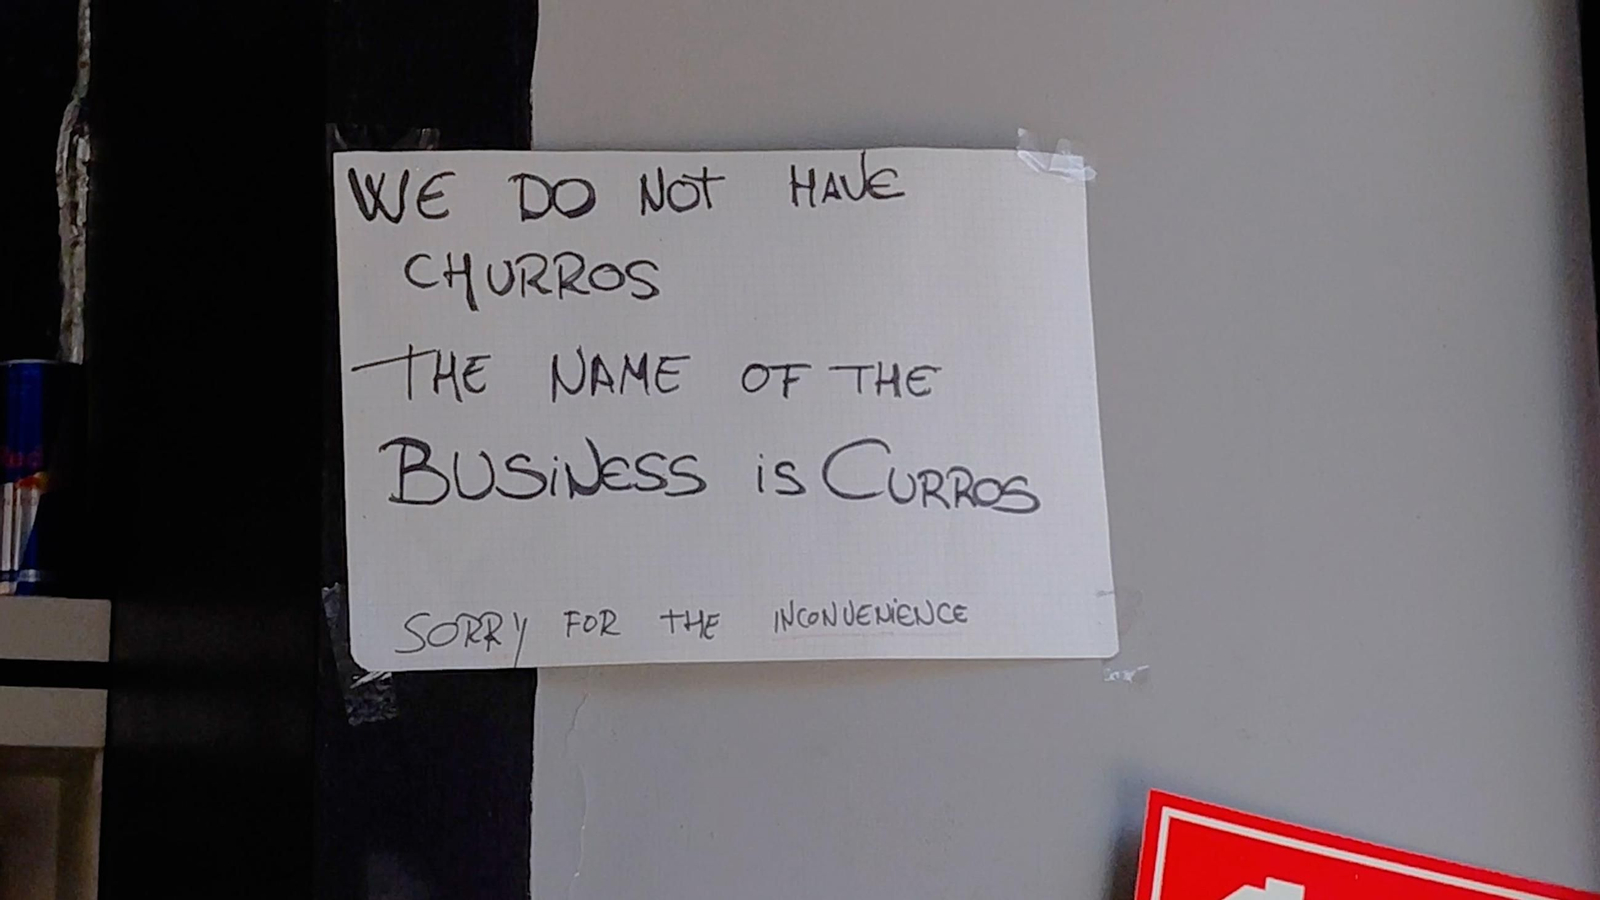 WE DO NOT HAVE
CHURROS
THE NAME OF THE
BUSINESS is CURROS
SORRY FOR THE INCONVENIENCE